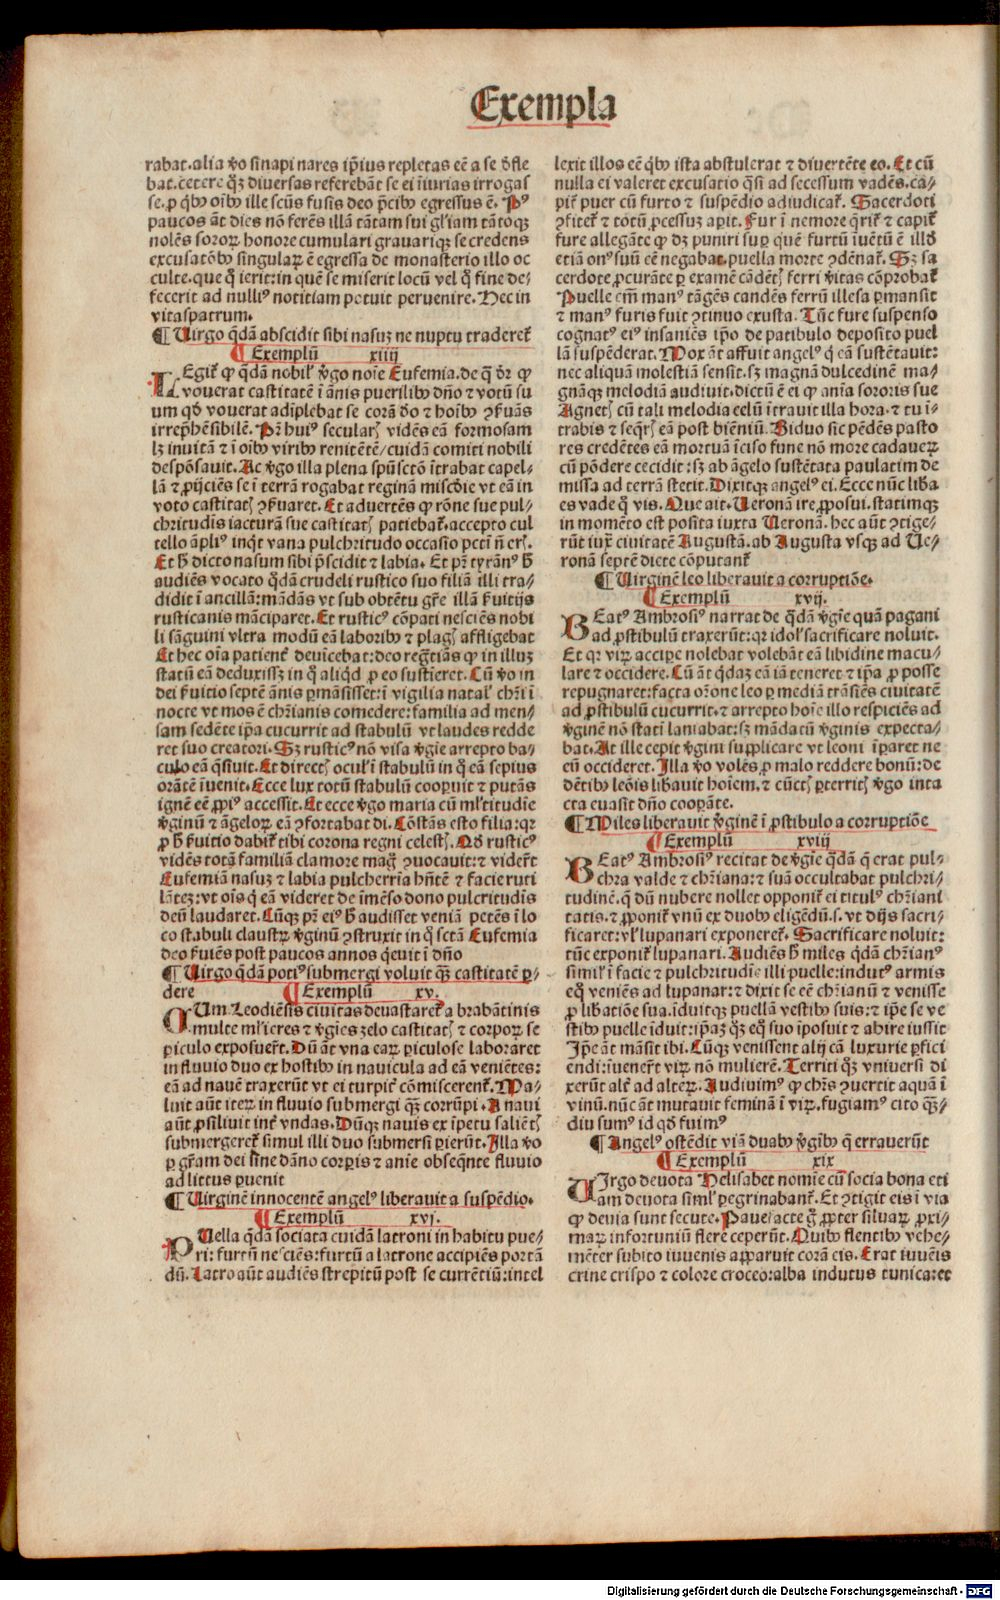 Exempla
rabat. alia v̄o sinapi nares ip̄ius repletas eē a se d̄fle
bat. cetere q̄ꝫ diversas referebāt se ei īiurias irrogas
se. ꝓ q̄bꝰ oībꝰ ille scūs fusis deo p̄cibꝰ egressus ē. Pꝰ
paucos āt dies nō ferēs illā tātam sui gl̓iam tātoqꝫ
nolēs sororꝝ honore cumulari gravariqꝫ se credens
excusatōibꝰ singularꝝ ē egressa de monasterio illo oc
culte. que q̄ ierit: in quē se miserit locū vel q̄ fine de⸗
fecerit ad nulliꝰ noticiam potuit peruenire. Hec in
vitaspatrum.
¶ Uirgo q̄dā abscidit sibi nasuꝫ ne nuptu traderet᷑
¶ Exemplū xiiij
LEgit᷑ ꝙ q̄dā nobil̓ v̄go noīe Eufemia. de q̄ d̄r ꝙ
vouerat castitatē ī ānis puerilibꝰ dn̄o ⁊ votū su
um qd̄ vouerat adīplebat se corā d̄o ⁊ hoībꝰ ꝯẜuās
irrep̄hēsibilē. Pr̄ huiꝰ secularꝭ vidēs eā formosam
lꝫ inuitā ⁊ ī oībꝰ viribꝰ renitētē/ cuidā comiti nobili
despōsauit. Ac v̄go illa plena spū sctō ītrabat capel⸗
lā ⁊ ꝓijciēs se ī terrā rogabat reginā misc̄die vt eā in
voto castitatꝭ ꝯẜuaret. Et aduertēs ꝙ rōne sue pul⸗
chritudis iacturā sue castitatꝭ patiebat᷑. accepto cul
tello āpliꝰ inq̄t vana pulchritudo occasio pctī nō erꝭ.
Et h̄ dicto nasum sibi p̄scidit ⁊ labia. Et pr̄ tyrānꝰ h̄
audiēs vocato q̄dā crudeli rustico suo filiā illi tra⸗
didit ī ancillā: mādās vt sub obtētu gr̄e illā ẜuitijs
rusticanis māciparet. Et rusticꝰ cōpati nesciēs nobi
li sāguini vltra modū eā laboribꝰ ⁊ plagꝭ affligebat
Et hec oīa patient᷑ deuīcebat: deo regr̄tiās ꝙ in illuꝫ
statū eā deduxissꝫ in q̄ aliqd̄ ꝓ eo sustieret. Cū v̄o in
dei ẜuitio septē ānis ꝑmāsisset: ī vigilia natal̓ chr̄i ī
nocte vt mos ē chr̄ianis comedere: familia ad men⸗
sam sedēte ip̄a cucurrit ad stabulū vt laudes redde
ret suo creatori. Sꝫ rusticꝰ nō visa v̄gīe arrepto ba⸗
culo eā q̄siuit. Et directꝭ ocul̓ ī stabulū in q̄ eā sepius
orātē īuenit. Ecce lux totū stabulū cooꝑuit ⁊ putās
ignē eē ꝓpiꝰ accessit. Et ecce v̄go maria cū ml̓titudīe
v̄ginū ⁊ āgelorꝝ eā ꝯfortabat di. Cōstās esto filia: qꝛ
ꝓ h̄ ẜuitio dabit᷑ tibi corona regni celestꝭ. Qd̄ rusticꝰ
vidēs totā familiā clamore mag̓ ꝯuocauit: ⁊ vider̄t
Eufemiā nasuꝫ ⁊ labia pulcherria hn̄tē ⁊ facie ruti
lātes: vt oīs q̄ eā videret de īmēso dono pulcritudis
deū laudaret. Cūqꝫ pr̄ eiꝰ h̄ audisset veniā petēs ī lo
co stabuli claustrꝝ v̄ginū ꝯstruxit in q̄ sctā Eufemia
deo ẜuiēs post paucos annos q̄euit ī dn̄o
¶ Uirgo q̄dā potiꝰ submergi voluit q̄ꝫ castitatē ꝑ⸗
dere ¶ Exemplū xv.
QUm Leodiēsis ciuitas deuastaret᷑ a brabātinis
multe ml̓ieres ⁊ v̄gies zelo castitatꝭ ⁊ corporꝝ se
ꝑiculo exposuer̄t. Dū āt vna earꝝ ꝑiculose laboraret
in fluuio duo ex hostibꝰ in nauicula ad eā veniētes:
eā ad nauē traxerūt vt ei turpit᷑ cōmiscerent᷑. Ma⸗
luit aūt iterꝝ in fluuio submergi q̄ꝫ corrūpi. A naui
aūt ꝓsiliuit int᷑ vndas. Dūqꝫ nauis ex īpetu saliētꝭ
submergeret᷑ simul illi duo submersi ꝑierūt. Illa v̄o
ꝑ gr̄am dei sine dāno corꝑis ⁊ anīe obseq̄nte fluuio
ad littus ꝑuenit
¶ Uirginē innocentē angelꝰ liberauit a suspēdio.
¶ Exemplū xvj.
PUella q̄dā sociata cuidā latroni in habitu pue⸗
ri: furtū nesciēs: furtū a latrone accipiēs portā
dū. Latro aūt audiēs strepitū post se currētiū: intel
lexit illos eē q̄bꝰ ista abstulerat ⁊ diuertēte eo. Et cū
nulla ei valeret excusatio q̄si ad secessum vadēs. ca⸗
pit᷑ puer cū furto ⁊ suspēdio adiudicat᷑. Sacerdoti
ꝯfitet᷑ ⁊ totū ꝓcessuꝫ aꝑit. Fur ī nemore q̄rit᷑ ⁊ capit᷑
fure allegāte ꝙ dꝫ puniri suꝑ quē furtū iuētū ē illd̄
etiā onꝰ suū eē negabat. puella morte ꝯdēnat᷑. Sꝫ sa
cerdote ꝓcurāte ꝑ examē cādētꝭ ferri v̄itas cōprobat᷑
Puelle em̄ manꝰ tāgēs candēs ferrū illesa ꝑmansit
⁊ manꝰ furis fuit ꝯtinuo exusta. Tūc fure suspenso
cognatꝰ eiꝰ insaniēs ip̄o de patibulo deposito puel
lā suspēderat. Mox āt affuit angelꝰ q̄ eā sustētauit:
nec aliquā molestiā sensit. sꝫ magnā dulcedinē ma⸗
gnāqꝫ melodiā audiuit. dictū ē ei ꝙ anīa sororis sue
Agnetꝭ cū tali melodia celū ītrauit illa hora. ⁊ tu ī⸗
trabis ⁊ seq̄rꝭ eā post biēniū. Biduo sic pēdēs pasto
res credētes eā mortuā īciso fune nō more cadauerꝝ
cū pōdere cecidit: sꝫ ab āgelo sustētata paulatim de
missa ad terrā stetit. Dixitqꝫ angelꝰ ei. Ecce nūc liba
es vade q̄ vis. Que ait. Ueronā ire ꝓposui. statimqꝫ
in momēto est posita iuxta Ueronā. hec aūt ꝯtige⸗
rūt iux̄ ciuitatē Augustā. ab Augusta vsqꝫ ad Ue⸗
ronā septē diete cōputant᷑
¶ Uirginē leo liberauit a corruptiōe.
¶ Exemplū xvij.
BEatꝰ Ambrosiꝰ narrat de q̄dā v̄gīe quā pagani
ad ꝓstibulū traxerūt: qꝛ idol̓ sacrificare noluit.
Et qꝛ virꝝ acciꝑe nolebat volebāt eā libidine macu⸗
lare ⁊ occidere. Cū āt q̄daꝫ eā iā teneret ⁊ ip̄a ꝓ posse
repugnaret: facta orōne leo ꝑ mediā trāsiēs ciuitatē
ad ꝓstibulū cucurrit. ⁊ arrepto hoīe illo respiciēs ad
v̄ginē nō stati laniabat: sꝫ mādatū v̄ginis expecta⸗
bat. At ille cepit v̄gini supplicare vt leoni īparet ne
eū occideret. Illa v̄o volēs ꝓ malo reddere bonū: de
dētibꝰ leōis libauit hoīem. ⁊ cūctꝭ ꝑterritꝭ v̄go inta
cta euasit dn̄o cooꝑāte.
¶ Miles liberauit v̄ginē ī ꝓstibulo a corruptiōe
¶ Exemplū xviij
BEatꝰ Ambrosiꝰ recitat de v̄gīe q̄dā q̄ erat pul⸗
chra valde ⁊ chr̄iana: ⁊ suā occultabat pulchri⸗
tudinē. q̄ dū nubere nollet opponit᷑ ei titulꝰ chr̄iani
tatis. ⁊ ꝓponit᷑ vnū ex duobꝰ eligēdū. s. vt dijs sacri⸗
ficaret: vl̓ lupanari exponeret᷑. Sacrificare noluit:
tūc exponit᷑ lupanari. Audiēs h̄ miles q̄dā chr̄ianꝰ
simil̓ ī facie ⁊ pulchritudīe illi puelle: indutꝰ armis
eqꝰ veniēs ad lupanar: ⁊ dixit se eē chr̄ianū ⁊ venisse
ꝓ libatiōe sua. iduitqꝫ puellā vestibꝰ suis: ⁊ ip̄e se ve
stibꝰ puelle iduit: ip̄aꝫ q̄ꝫ eqꝰ suo īposuit ⁊ abire iussit
Ip̄e āt māsit ibi. Cūqꝫ venissent alij cā luxurie ꝑfici
endi: iuener̄t virꝝ nō mulierē. Territi q̄ꝫ vniuersi di
xerūt alt᷑ ad alterꝝ. Audiuimꝰ ꝙ chr̄s ꝯuertit aquā ī
vinū. nūc āt mutauit feminā ī virꝝ. fugiamꝰ cito q̄ꝫ⸗
diu sumꝰ id qd̄ fuimꝰ
¶ Angelꝰ ostēdit viā duabꝰ v̄gībꝰ q̄ errauerūt
¶ Exemplū xix
UIrgo deuota Helisabet nomīe cū socia bona eti
am deuota siml̓ ꝑegrinabant᷑. Et ꝯtigit eis ī via
ꝙ deuia sunt secute. Pauefacte ḡ ꝓpter siluarꝝ ꝓxi⸗
marꝝ infortuniū flere ceperūt. Quibꝰ flentibꝰ vehe⸗
mēter subito iuuenis apparuit corā eis. Erat iuuēis
crine crispo ⁊ colore croceo: alba indutus tunica: et
Digitalisierung gefördert durch die Deutsche Forschungsgemeinschaft - DFG